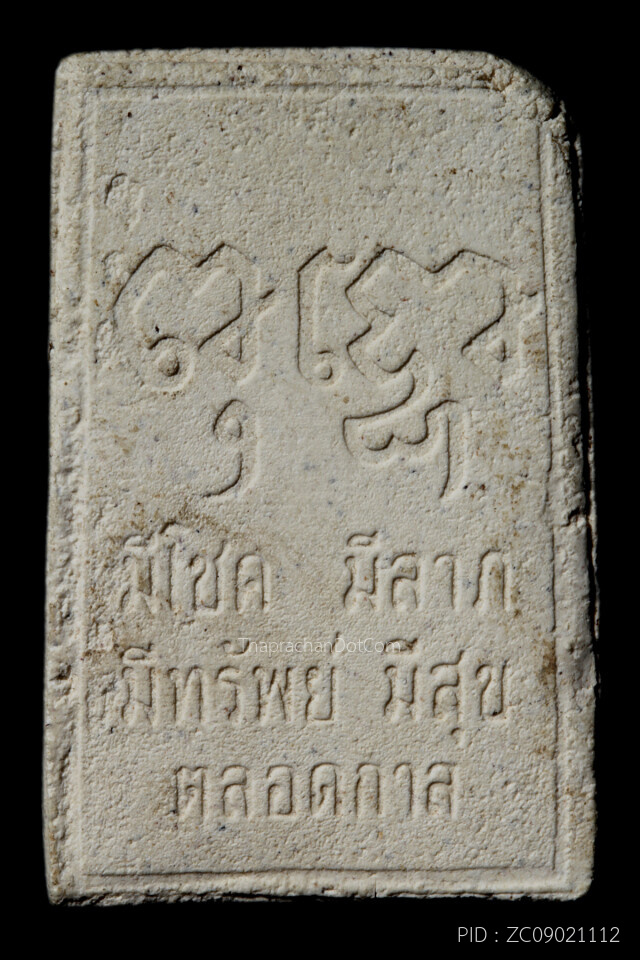 มีโชค มีลาภ
มีทรัพย์ มีสุข
ตลอดกาล
ThaprachanDotCom
PID : ZC09021112